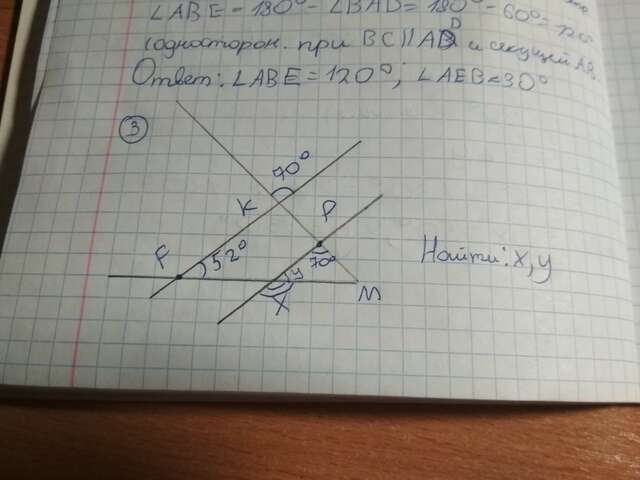 ∠ABE = 180° - ∠BAD = 180° - 60° = 120°
(односторон. при BC || AD и секущей AB.
Ответ: ∠ABE = 120°; ∠AEB = 30°
3
70°
K
P
F
52°
y
70°
X
M
Найти: x, y